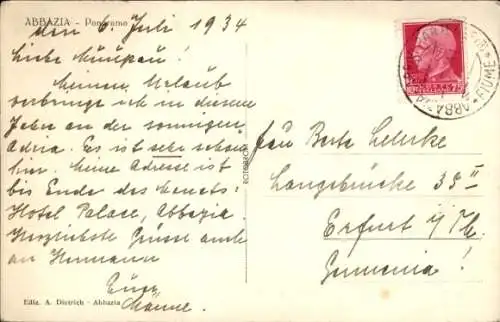 ABBAZIA - Panorama
den 6. Juli 1934
Liebe
Meinen Urlaub
verbringe ich in diesem
Jahre an der sonnigen
Adria. Es ist sehr schön
hier. Meine Adresse ist
bis Ende des Monats:
Hotel Palace, Abbazia.
Herzlichste Grüsse auch
an Hermann
Eure
Ediz. A. Dietrich - Abbazia
Frau Berta
Langebrücke 35 II
Erfurt i/Th.
Germania!
ABBAZIA
FIUME